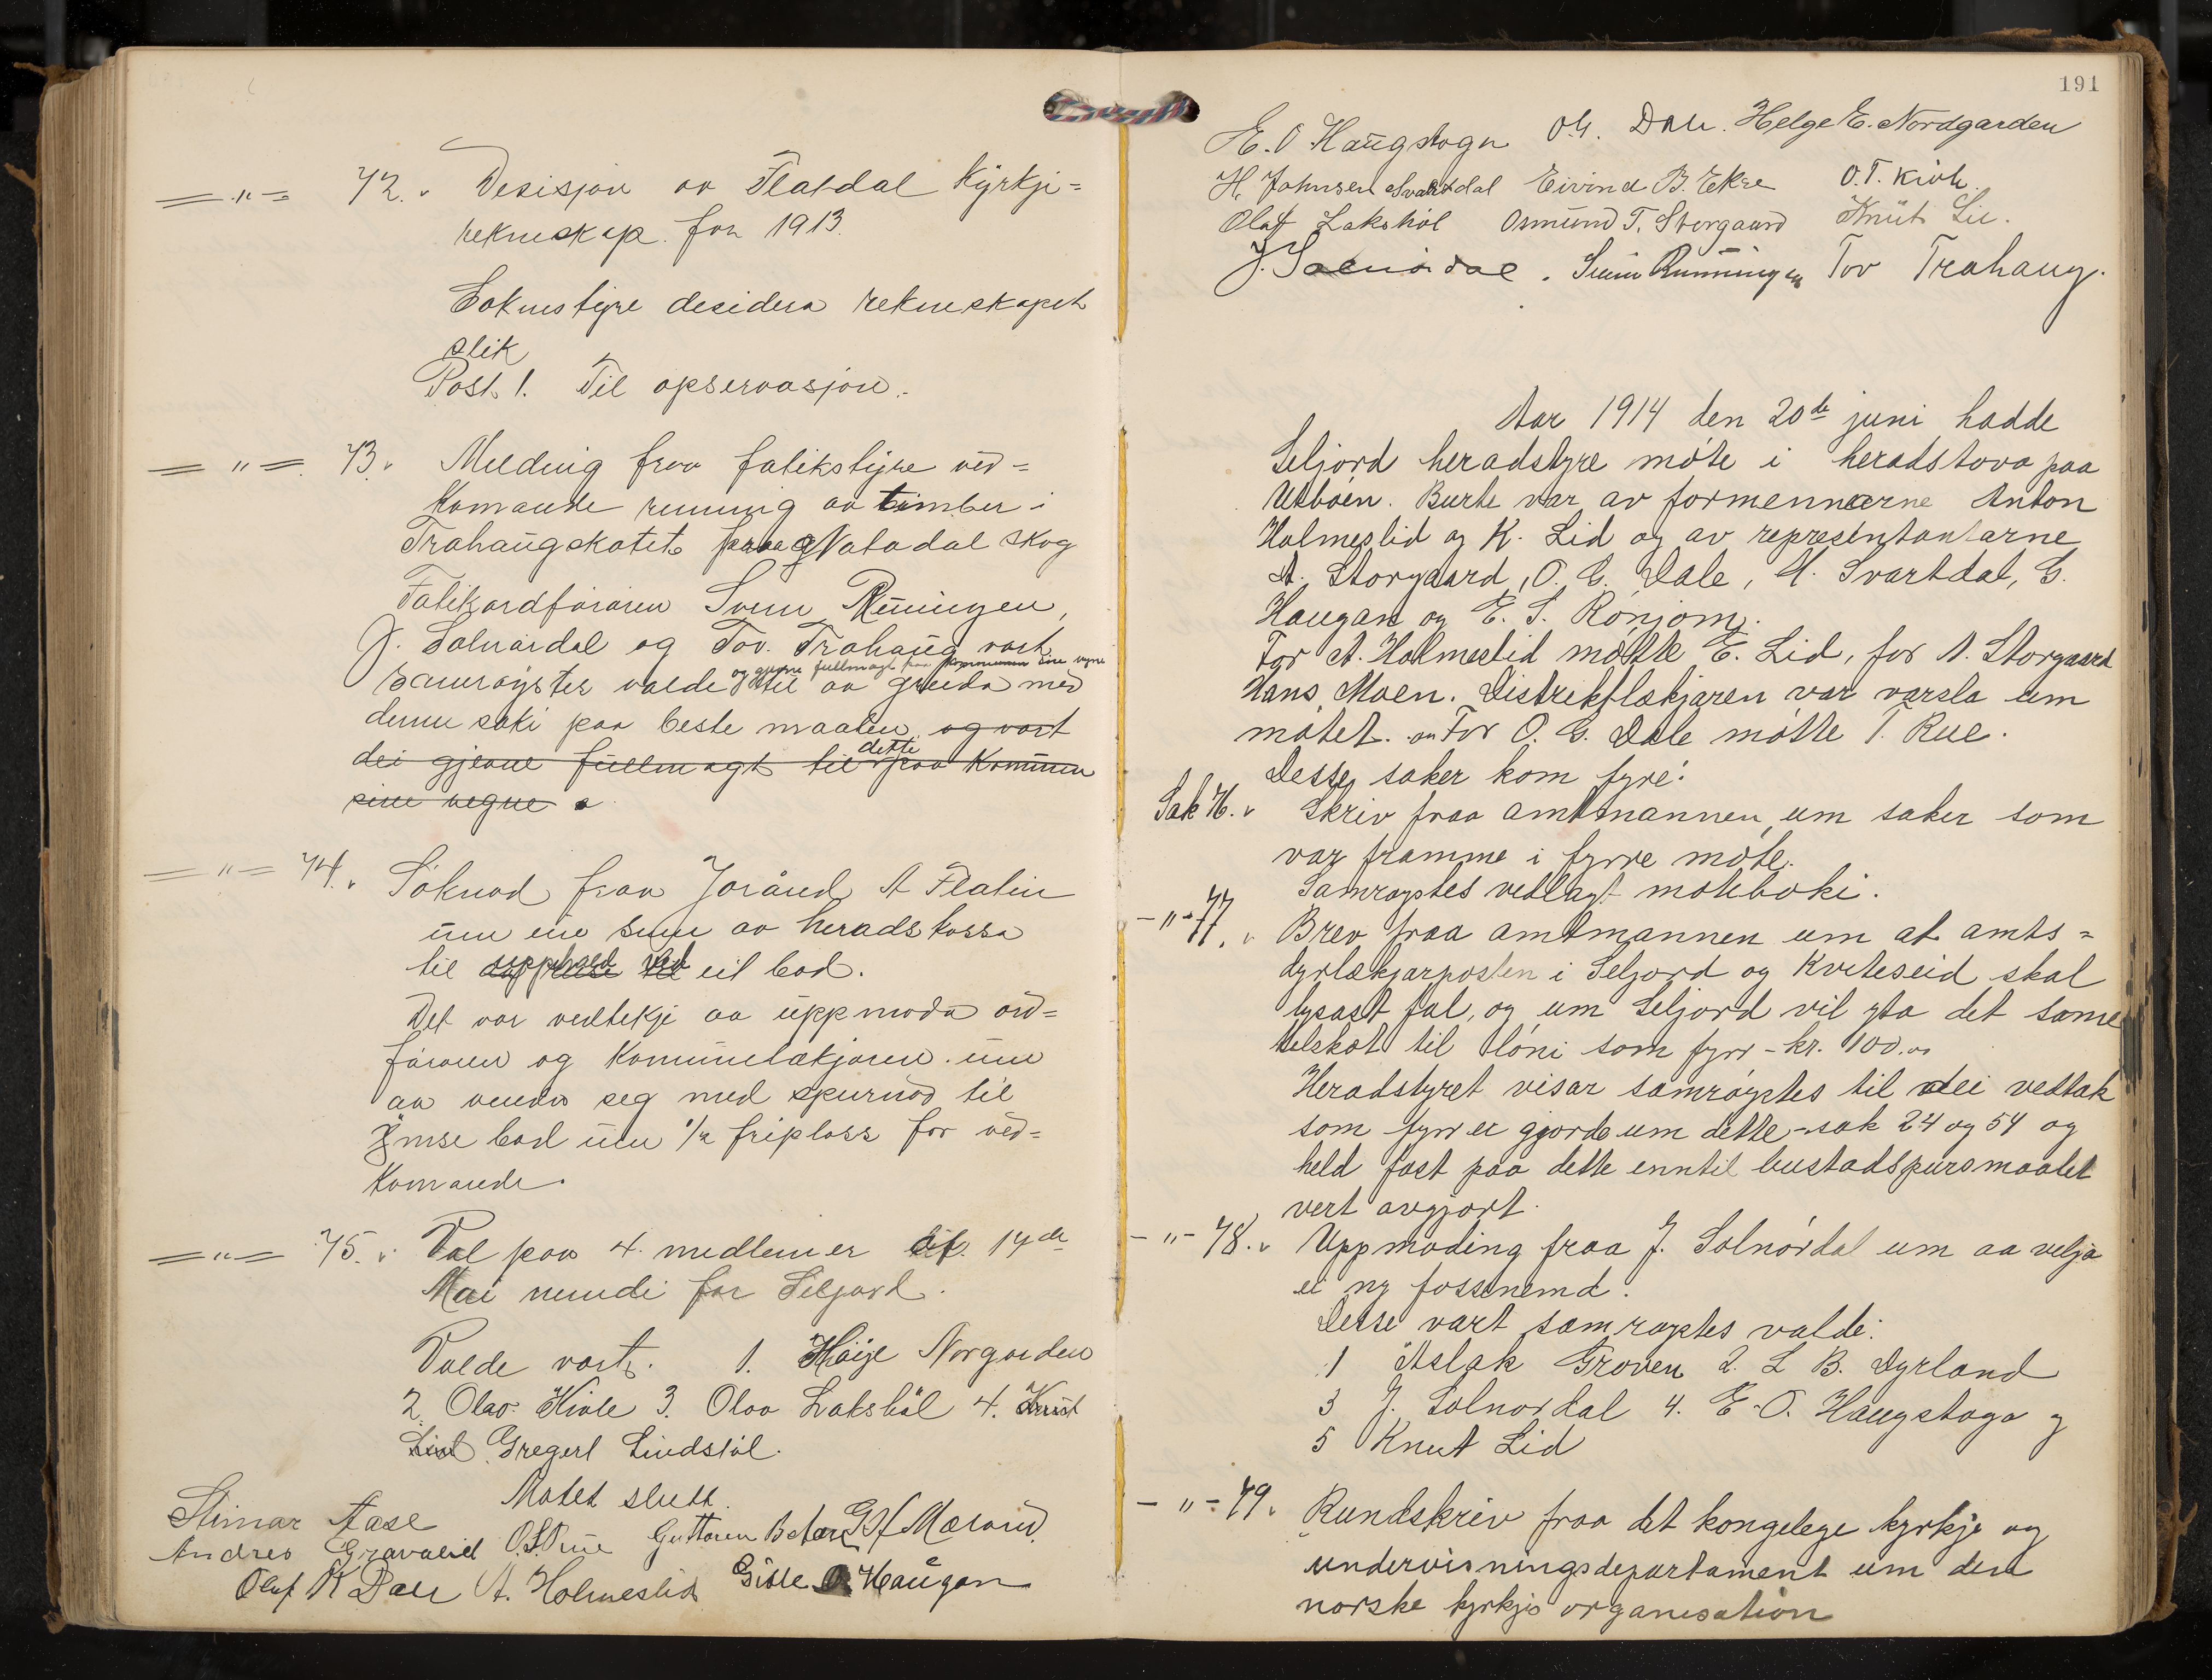 =„= 72. Desisjon av Flatdal Kyrkje=
rekneskap for 1913.
Soknestyre desidera rekneskapet
slik
Post 1. Til opservasjon.
=„= 73. Melding fraa fatikstyre ved=
komande renning av timber i
Trahaugskotet paa Natadal skog
Fatikordføraren Svein Rüningen,
J. Solnørdal og Tov. Trahaug vart
og gjevne fullmagt fraa kommunen sine vegne
samrøystes valde til aa greida med
denne saki paa beste maaten og vart
dei gjevne fullmagt til dette paa Kommun
sine vegne
=„= 74. Søknad fraa Jorånd A Flatin
um ein sum av heradskassa
til upphald ved eit bad.
Det var vedteke aa uppmoda ord=
føraren og Kommunelækjaren um
aa venda seg med spurnad til
ymse bad um 1/2 friplass for ved=
komande.
=„= 75. Val paa 4. medlemer af. 17de
Mai nemdi for Seljord.
Valde vart. 1. Høije Norgarden
2. Olav Kivle 3. Olav Lakshøl 4. Knut
Lid Gregert Lindstøl.
Møtet slutt.
Steinar Aase
Andres Gravalid O.S. Guttorm G H Mæland
Oluf K Dale A. Holmeslid Gisle O. Haugan
191
E. O Haugstoga O.G. Dale. Helge E. Nordgarden
H. Johnsen Svartdal Eivind B. Ekre O.T. Kivle
Olaf Lakshøl Osmund T. Storgaard Knut Lid.
J. Solnørdal. Svein Rünningen Tov Trahaug.
Aar 1914 den 20de juni hadde
Seljord heradstyre møte i heradstova paa
Utbøen. Burte var av formennarne Anton
Holmeslid og K. Lid og av representantarne
A. Storgaard, O. G. Dale, H. Svartdal, G.
Haugan og E. S. Rønjom.
For A. Holmeslid møtte E. Lid, for A. Storgaard
Hans Moen. Distriktlækjaren var varsla um
møtet. For O. G. Dale møtte T. Rue.
Desse saker kom fyre:
Sak 76. Skriv fraa amtmannen um saker som
var framme i fyrre møte.
Samrøystes vedlagt møteboki.
-„- 77. Brev fraa amtmannen um at amts=
dyrlækjarposten i Seljord og Kviteseid skal
lysast fal, og um Seljord vil yta det same
telskot til løni som fyrr - kr. 100.00
Heradstyret visar samrøystes til dei vedtak
som fyrr er gjorde um dette - sak 24 og 54 og
held fast paa dette enntil bustadspursmaalet
vert avgjort.
-„- 78. Uppmoding fraa J. Solnørdal um aa velja
ei ny fossenemd.
Desse vart samrøystes valde:
1 Aslak Groven 2. L B. Dyrland
3 J. Solnørdal 4. E. O. Haugstoga og
5 Knut Lid
-„- 79. Rundskriv fraa det kongelege kyrkje og
undervisningsdepartament um den
norske kyrkjes organisation